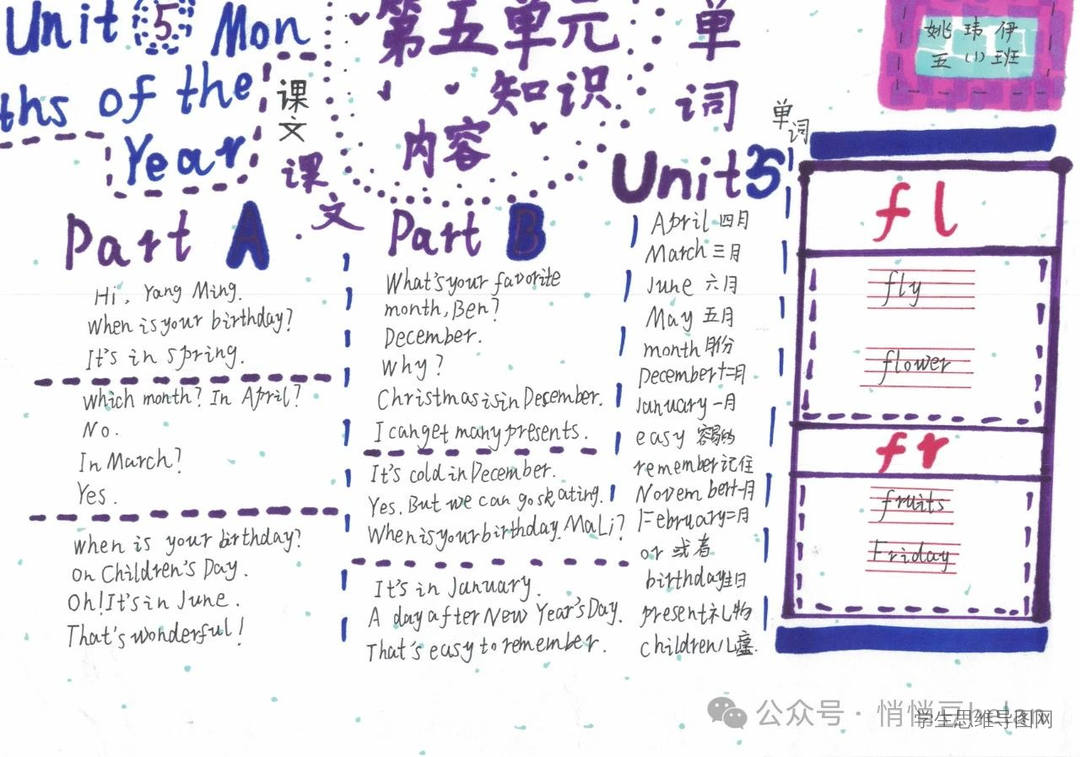 Unit 5 Mon
ths of the
Year
课文
第五单元
知识
内容
单词
Unit5
姚玮伊
五(1)班
课文
Part A
Hi, Yang Ming.
When is your birthday?
It's in spring.
Which month? In April?
No.
In March?
Yes.
When is your birthday?
On Children's Day.
Oh! It's in June.
That's wonderful!
Part B
What's your favorite
month, Ben?
December.
Why?
Christmas is in Desember.
I can get many presents.
It's cold in December.
Yes. But we can go skating.
When is your birthday. Ma Li?
It's in January.
A day after New Year's Day.
That's easy to remember.
April 四月
March 三月
June 六月
May 五月
month 月份
December 十二月
January 一月
easy 容易的
remember 记住
November 十一月
February 二月
or 或者
birthday 生日
present 礼物
children 儿童
单词
fl
fly
flower
fr
fruits
Friday
公众号 · 悄悄豆
学生思维导图网